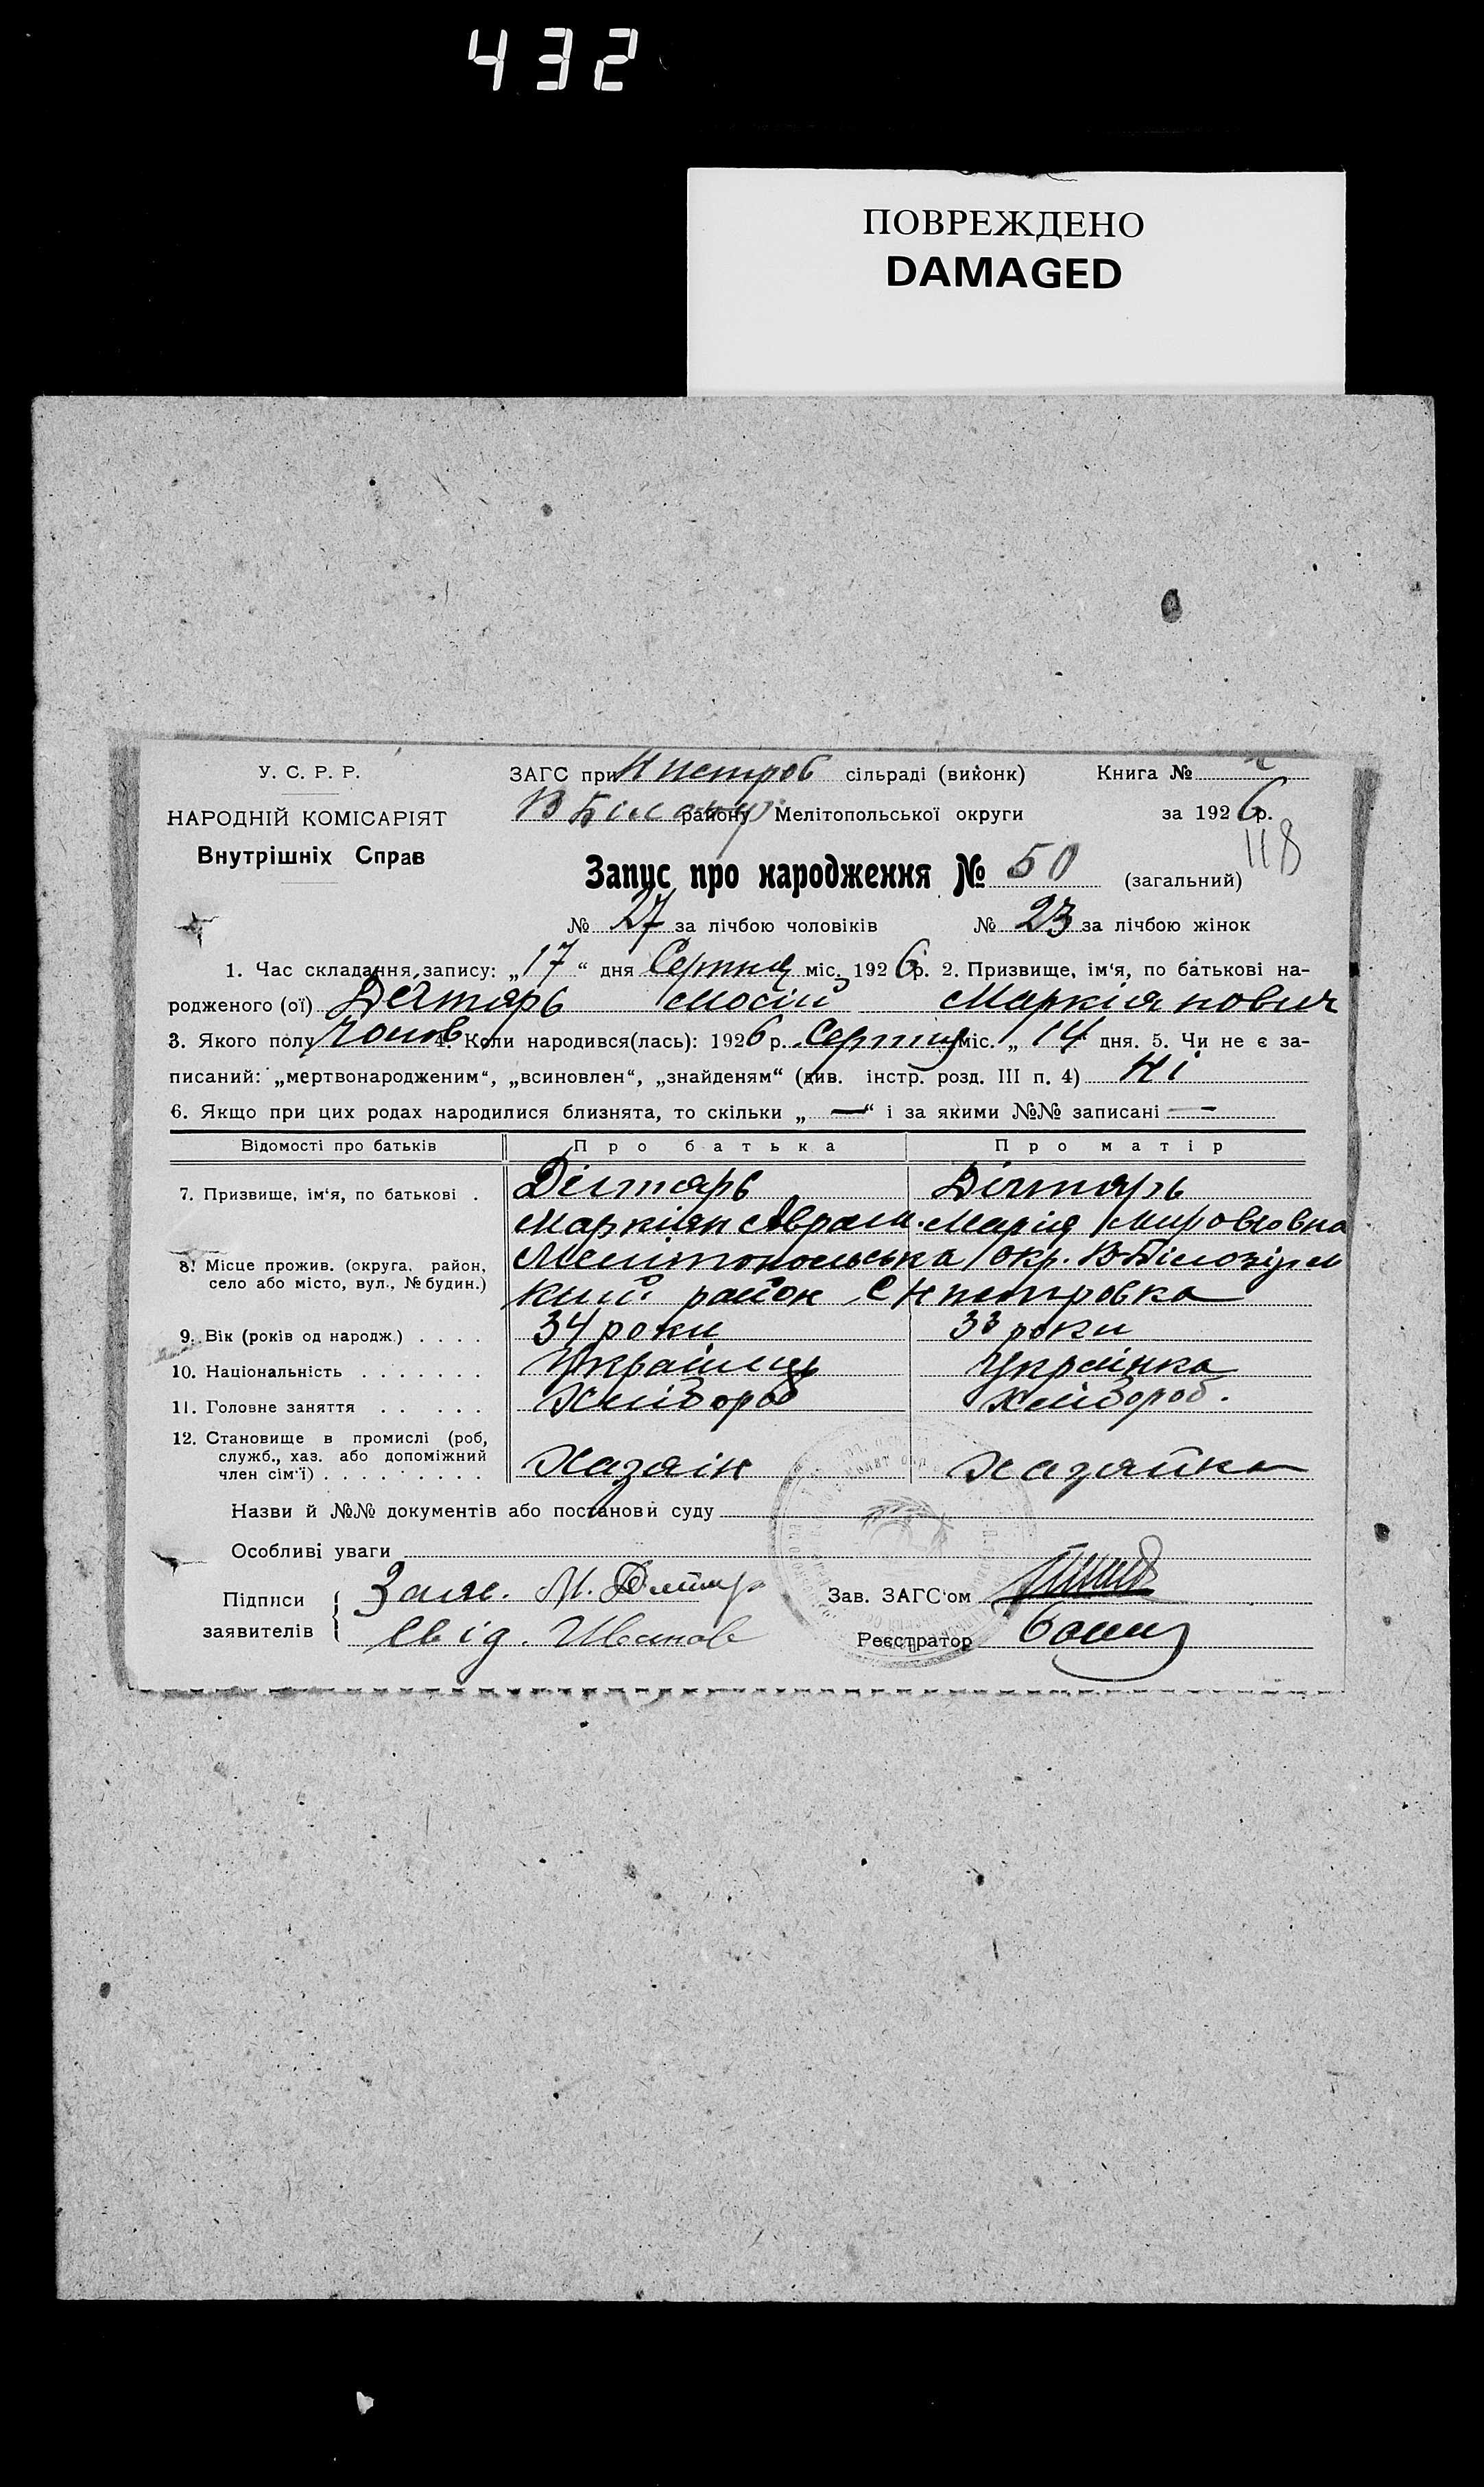 432
ПОВРЕЖДЕНО
DAMAGED
У. С. Р. Р.
НАРОДНІЙ КОМІСАРІЯТ
Внутрішніх Справ
ЗАГС при Н петров сільраді (виконк) Книга №
В Білозір району Мелітопольської округи за 1926 р.
118
Запис про народження № 50 (загальний)
№ 27 за лічбою чоловіків № 23 за лічбою жінок
1. Час складання запису: „17“ дня Серпня міс. 1926 р. 2. Призвище, ім‘я, по батькові на-
родженого (ої) Дігтярь Мосій Маркіянович
3. Якого полу Чолов 4. Коли народився(лась): 1926 р. Серпня міс. „ 14 дня. 5. Чи не є за-
писаний: „мертвонародженим“, „всиновлен“, „знайденям“ (див. інстр. розд. III п. 4) Ні
6. Якщо при цих родах народилися близнята, то скільки „ — “ і за якими №№ записані —
Відомості про батьків Про батька Про матір
7. Призвище, ім‘я, по батькові . Дігтярь Дігтярь
Маркіян Аврам. Марія Мировновна
8. Місце прожив. (округа, район, село або місто, вул., № будин.) Мелітопольська окр. В-Білозірсь
кий район С Н петровка
9. Вік (років од народж.) . . . . 34 роки 33 роки
10. Національність . . . . . . . Українець Українка
11. Головне заняття . . . . . . Хлібороб Хлібороб.
12. Становище в промислі (роб, служб., хаз. або допоміжний член сім‘ї) . . . . . . . . . Хазяін Хазяйка
Назви й №№ документів або постанови суду
Особливі уваги
Підписи заявителів { Заяв. М. Дігтяр Зав. ЗАГС‘ом
Свід. Иванов Реєстратор